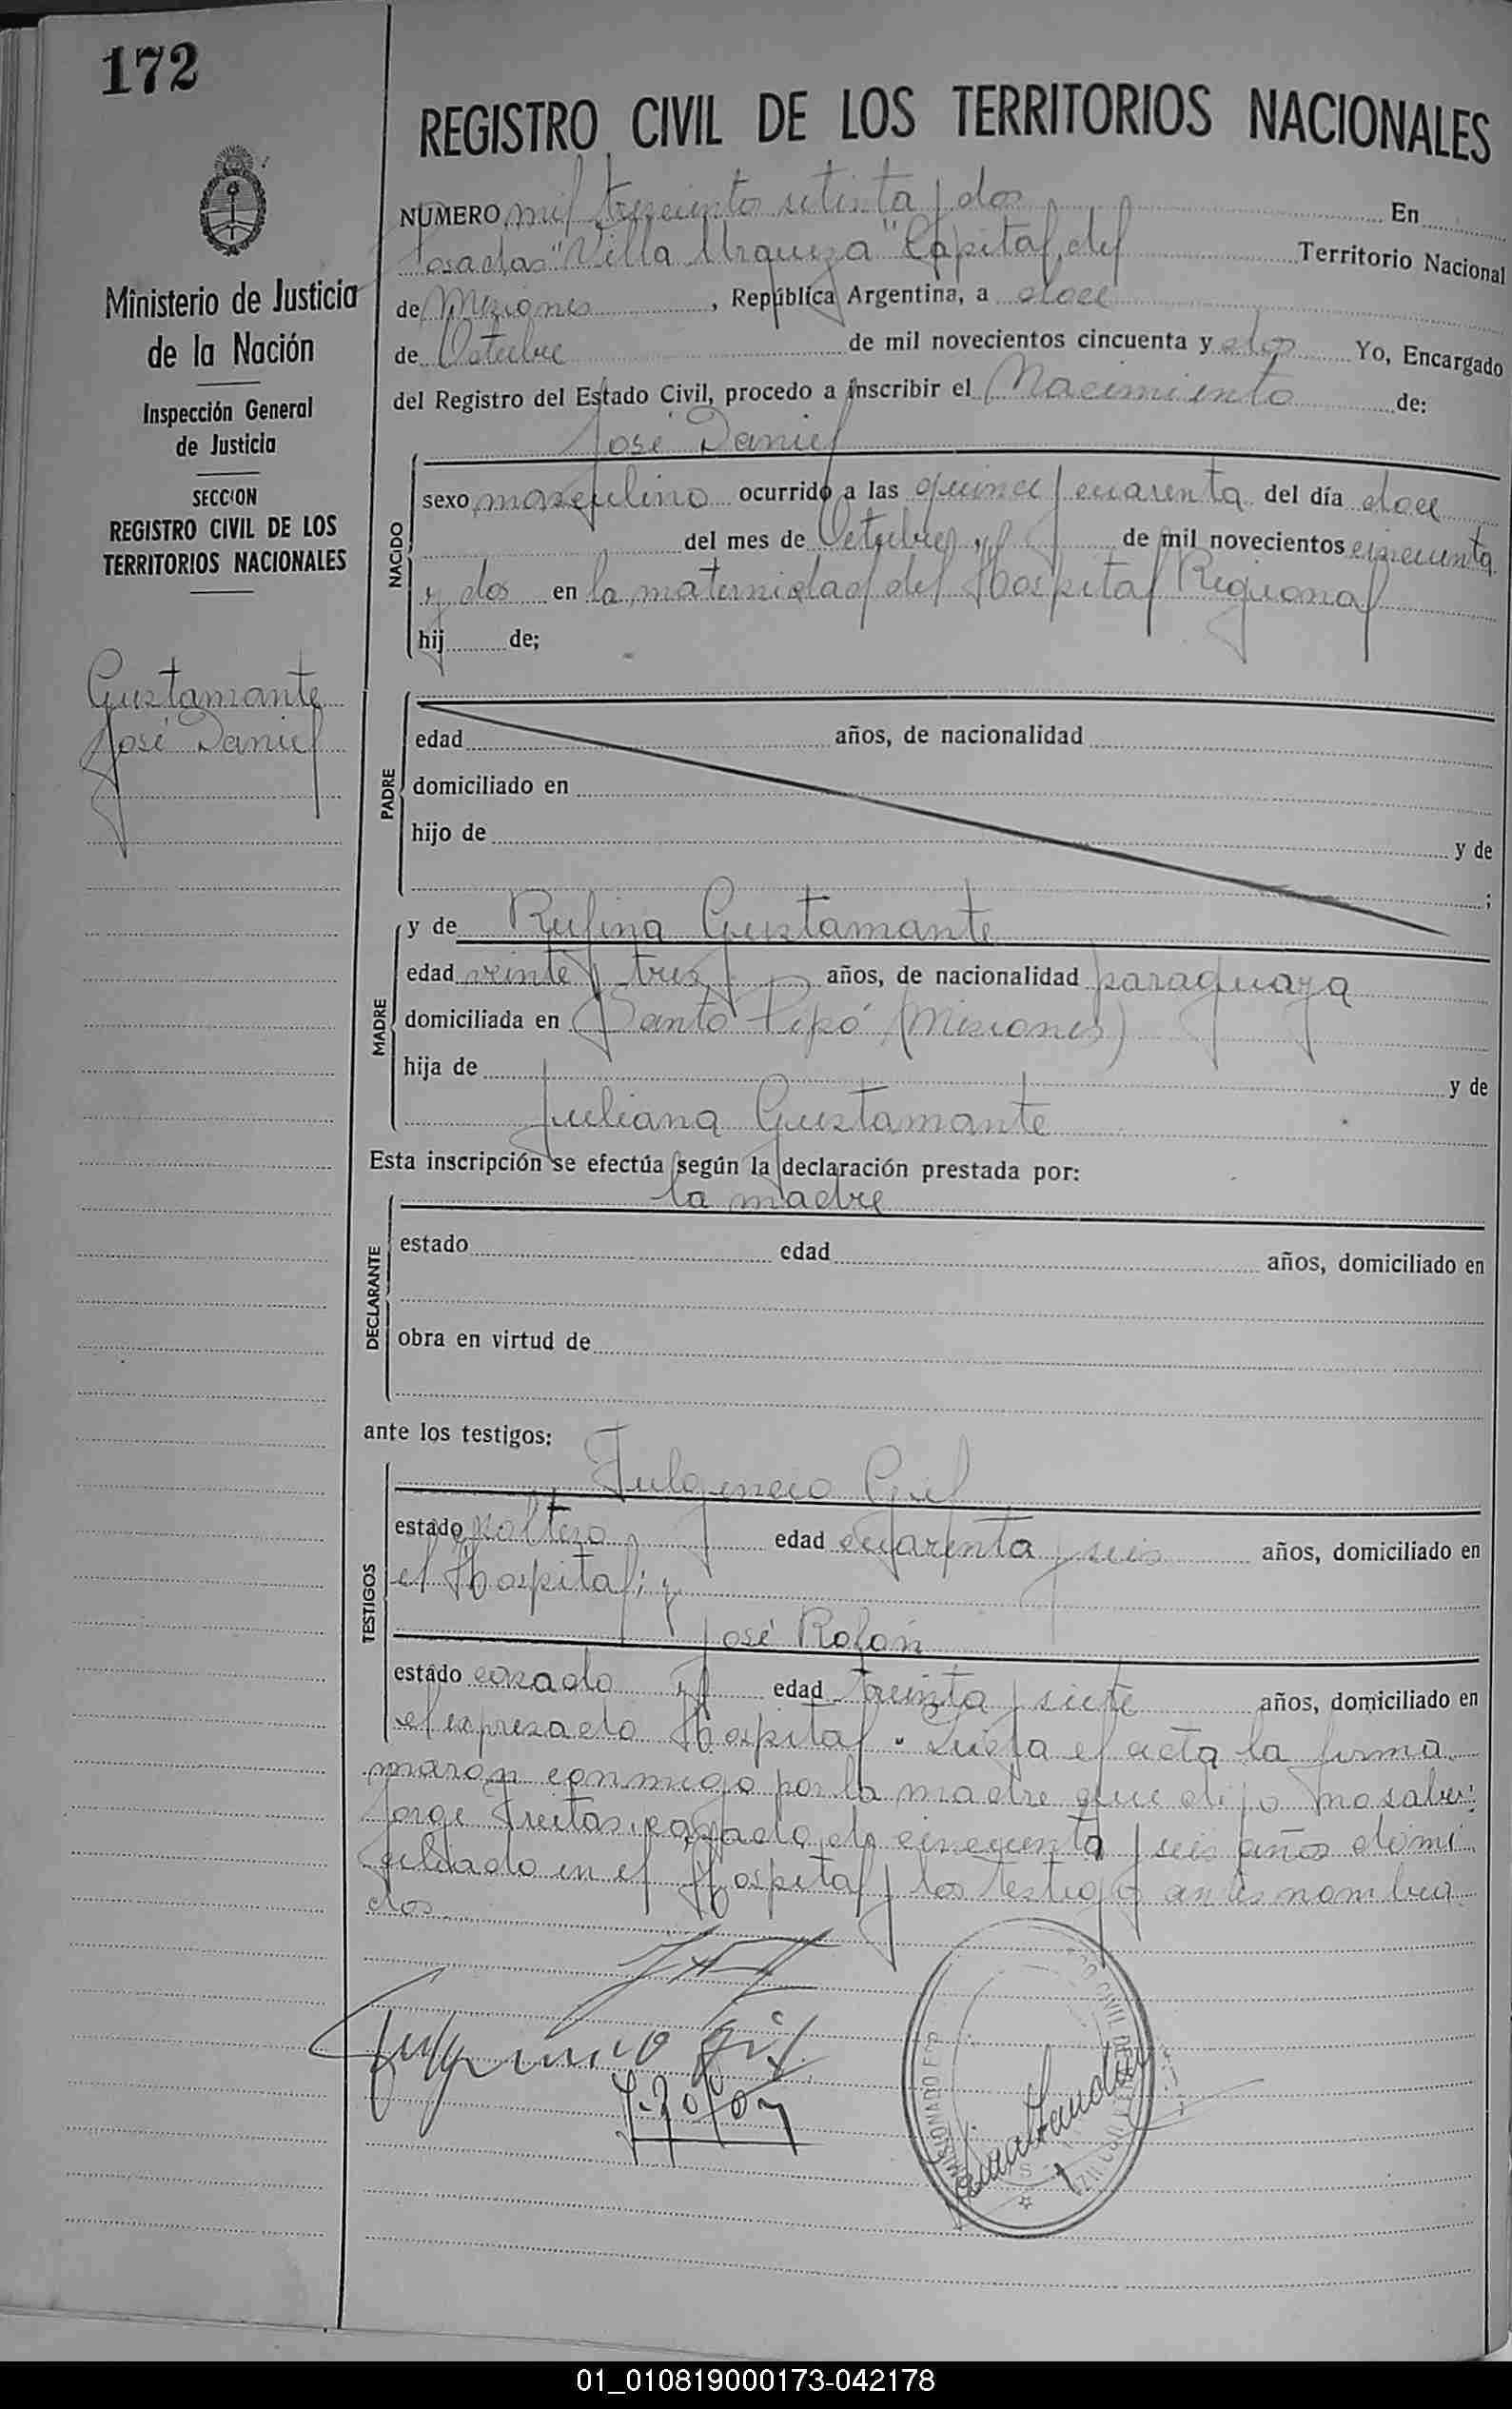 172
REGISTRO CIVIL DE LOS TERRITORIOS NACIONALES
Ministerio de Justicia
de la Nación
Inspección General
de Justicia
SECCION
REGISTRO CIVIL DE LOS
TERRITORIOS NACIONALES
Gustamante
José Daniel
NUMERO mil trescientos setenta y dos En
Posadas "Villa Urquiza" Capital del Territorio Nacional
de Misiones, República Argentina, a doce
de Octubre de mil novecientos cincuenta y dos Yo, Encargado
del Registro del Estado Civil, procedo a inscribir el Nacimiento de:
José Daniel
NACIDO
sexo masculino ocurrido a las quince y cuarenta del día doce
del mes de Octubre de mil novecientos cincuenta
y dos en la maternidad del Hospital Regional
hij de;
PADRE
edad años, de nacionalidad
domiciliado en
hijo de y de
;
MADRE
y de Rufina Gustamante
edad veinte y tres años, de nacionalidad paraguaya
domiciliada en Santo Pipó (Misiones)
hija de y de
Juliana Gustamante
Esta inscripción se efectúa según la declaración prestada por:
la madre
DECLARANTE
estado edad años, domiciliado en
obra en virtud de
ante los testigos:
TESTIGOS
Fulgencio Gil
estado soltero edad cuarenta y seis años, domiciliado en
el Hospital; y
José Rolón
estado casado edad treinta y siete años, domiciliado en
el expresado Hospital. Leída el acta la firma
maron conmigo por la madre que dijo no saber:
Jorge Freitas, casado, de cincuenta y seis años domi
ciliado en el Hospital y los testigos antes nombra
dos.
Fulgencio Gil
01_010819000173-042178